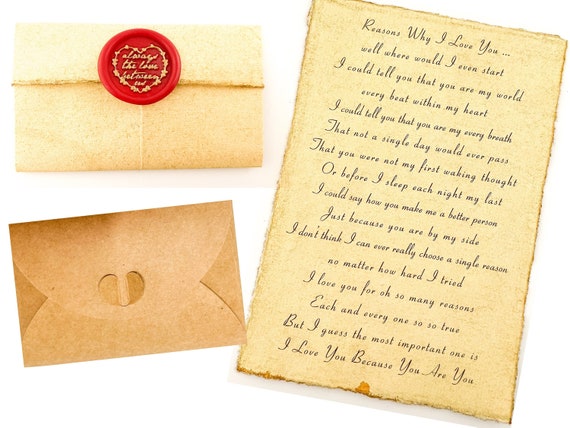 always
the love
between
us
Reasons Why I Love You ...
well where would I even start
I could tell you that you are my world
every beat within my heart
I could tell you that you are my every breath
That not a single day would ever pass
That you were not my first waking thought
Or before I sleep each night my last
I could say how you make me a better person
Just because you are by my side
I don't think I can ever really choose a single reason
no matter how hard I tried
I love you for oh so many reasons
Each and every one so so true
But I guess the most important one is
I Love You Because You Are You